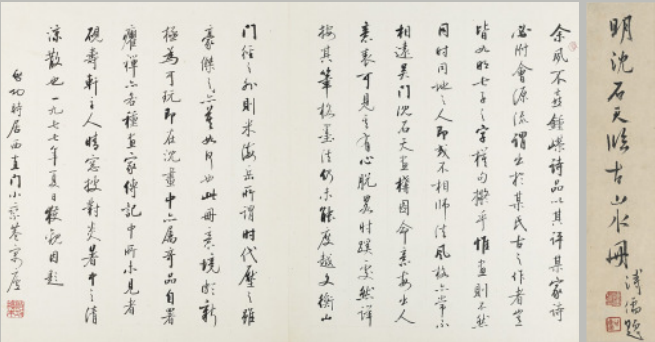 明沈石天臨古山水冊
溥儒題
余夙不喜鍾嶸詩品以其評某家詩
必附會源流謂出於某氏古之作者豈
皆如明七子之字模句擬乎惟畫則不然
同時同地之人即或不相師法風格亦常不
相遠吳門沈石天畫構圖命意每出人
意表可見其有心脫畧時蹊處然詳
按其筆格墨法仍未能度越文衡山
門徑之外則米海岳所謂時代壓之雖
豪傑之亦莫如何也此冊意境頗新
極為可玩即在沈畫中亦屬奇品自署
癯禪亦各種畫家傳記中所未見者
硯壽軒主人晴窓披對炎暑中之清
涼散也一九七七年夏日獲觀因題
啟功時居西直門小乘巷寓廬